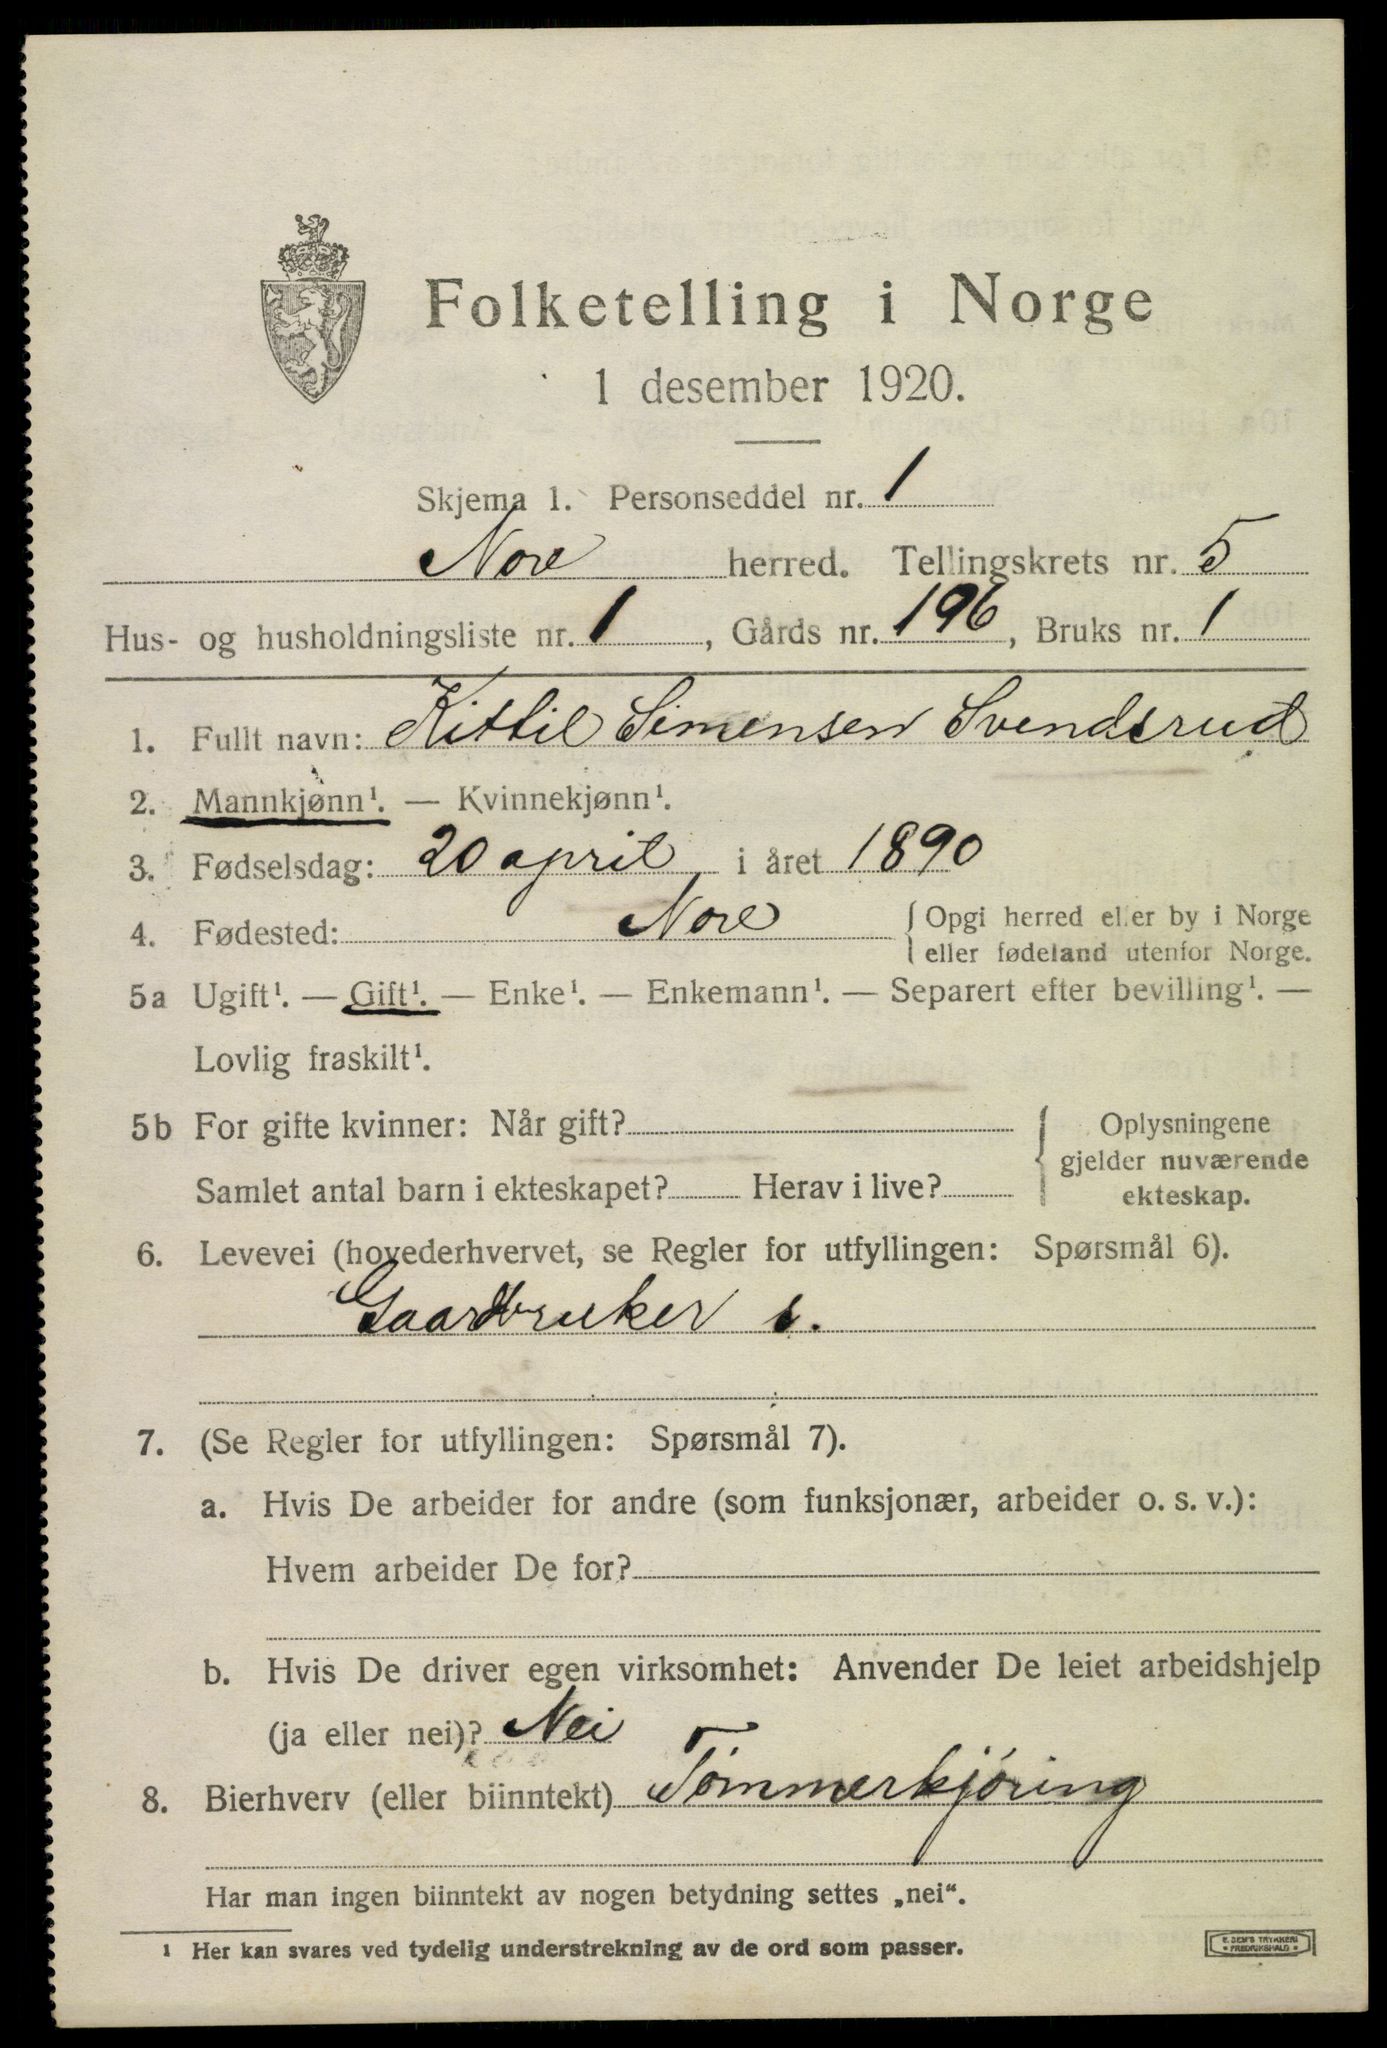 Folketelling i Norge
1 desember 1920.
Skjema 1. Personseddel nr. 1
Nore herred. Tellingskrets nr. 5
Hus- og husholdningsliste nr. 1, Gårds nr. 196, Bruks nr. 1
1. Fullt navn: Kittil Simensen Svendsrud
2. Mannkjønn¹. — Kvinnekjønn¹.
3. Fødselsdag: 20 april i året 1890
4. Fødested: Nore { Opgi herred eller by i Norge
eller fødeland utenfor Norge.
5a Ugift¹. — Gift¹. — Enke¹. — Enkemann¹. — Separert efter bevilling¹. —
Lovlig fraskilt¹.
5b For gifte kvinner: Når gift? { Oplysningene
gjelder nuværende
Samlet antal barn i ekteskapet? Herav i live? ekteskap.
6. Levevei (hovederhvervet, se Regler for utfyllingen: Spørsmål 6).
Gaardbruker s.
7. (Se Regler for utfyllingen: Spørsmål 7).
a. Hvis De arbeider for andre (som funksjonær, arbeider o. s. v.):
Hvem arbeider De for?
b. Hvis De driver egen virksomhet: Anvender De leiet arbeidshjelp
(ja eller nei)? Nei
8. Bierhverv (eller biinntekt) Tømmerkjøring
Har man ingen biinntekt av nogen betydning settes „nei“.
1 Her kan svares ved tydelig understrekning av de ord som passer.
E. SEM'S TRYKKERI
FREDRIKSHALD